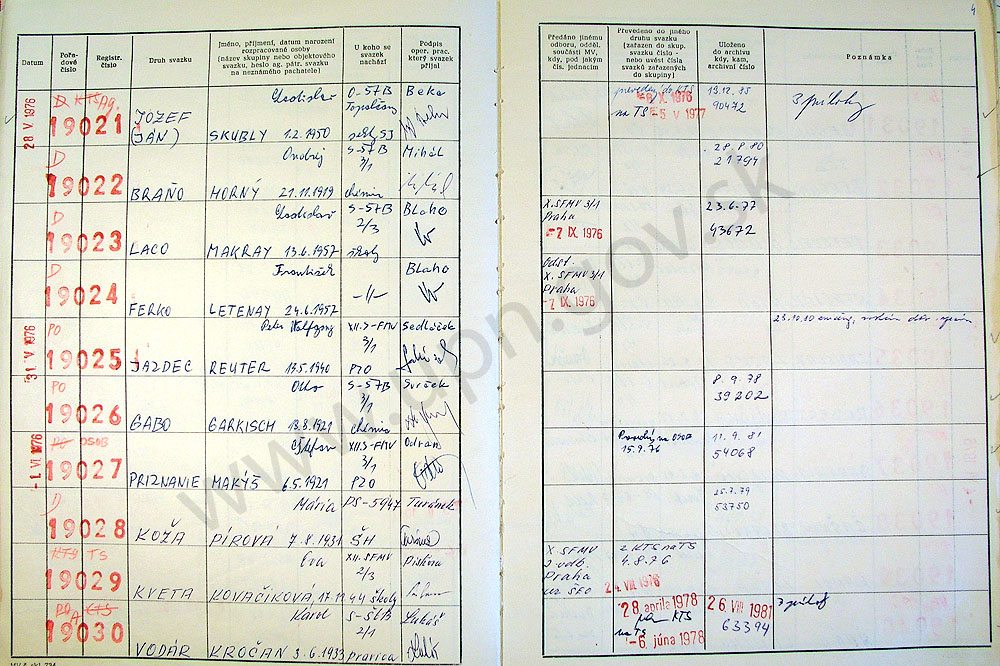 Datum
Pořadové číslo
Registr. číslo
Druh svazku
Jméno, příjmení, datum narození rozpracované osoby (název skupiny nebo objektového svazku, heslo ag. pátr. svazku na neznámého pachatele)
U koho se svazek nachází
Podpis oper. prac. který svazek přijal
Předáno jinému odboru, odděl. součásti MV, kdy, pod jakým čís. jednacím
Převedeno do jiného druhu svazku (zařazen do skup. svazku číslo - nebo uvést čísla svazků zařazených do skupiny)
Uloženo do archivu kdy, kam, archivní číslo
Poznámka
4
28 V. 1976
D KTS
19021
JOZEF
(JÁN)
Ladislav
SKUBLY 1.2.1950
O-ŠTB
Topoľčany
Beka
na TS -5 V 1977
13.12.85
90472
3 prílohy
D
19022
BRAŇO
Ondrej
HORNÝ 21.11.1919
S-ŠTB
3/1
chémia
Mihál
28.8.80
21794
D
19023
LACO
Ladislav
MAKRAY 13.6.1957
S-ŠTB
2/3
školy
Blaho
X. SFMV 3/1
Praha
-7 IX. 1976
23.6.77
43672
D
19024
FERKO
František
LETENAY 24.6.1957
-//-
Blaho
Odst.
X. SFMV 3/1
Praha
-7 IX. 1976
31. V 1976
PO
19025
JAZDEC
Peter Wolfgang
REUTER 13.5.1940
XII.S-FMV
3/1
P20
Sedláček
23.12.80
PO
19026
GABO
Otto
GARKISCH 18.8.1921
S-ŠTB
3/1
chémia
Svrček
8.9.78
39202
-1. VI. 1976
PO OSOB
19027
PRIZNANIE
Štefan
MAKÝŠ 6.5.1921
XII.S-FMV
3/1
P20
Odran
15.9.76
11.9.81
54068
D
19028
KOŽA
Mária
PÍROVÁ 7.8.1931
PS-5947
ŠH
Turánek
25.7.79
53750
KTS TS
19029
KVETA
Eva
KOVAČIKOVÁ
XII.SFMV
2/3
školy
X. SFMV
2 odb.
Praha
24. VIII. 1976
z KTS na TS
4.8.76
PO A KTS
19030
VODÁR
Karol
KROČAN 3.6.1933
S-ŠTB
2/1
pravica
Lukáš
28. apríla 1978
KTS
na TS -6. júna 1978
26 VIII 1981
63394
www.upn.gov.sk